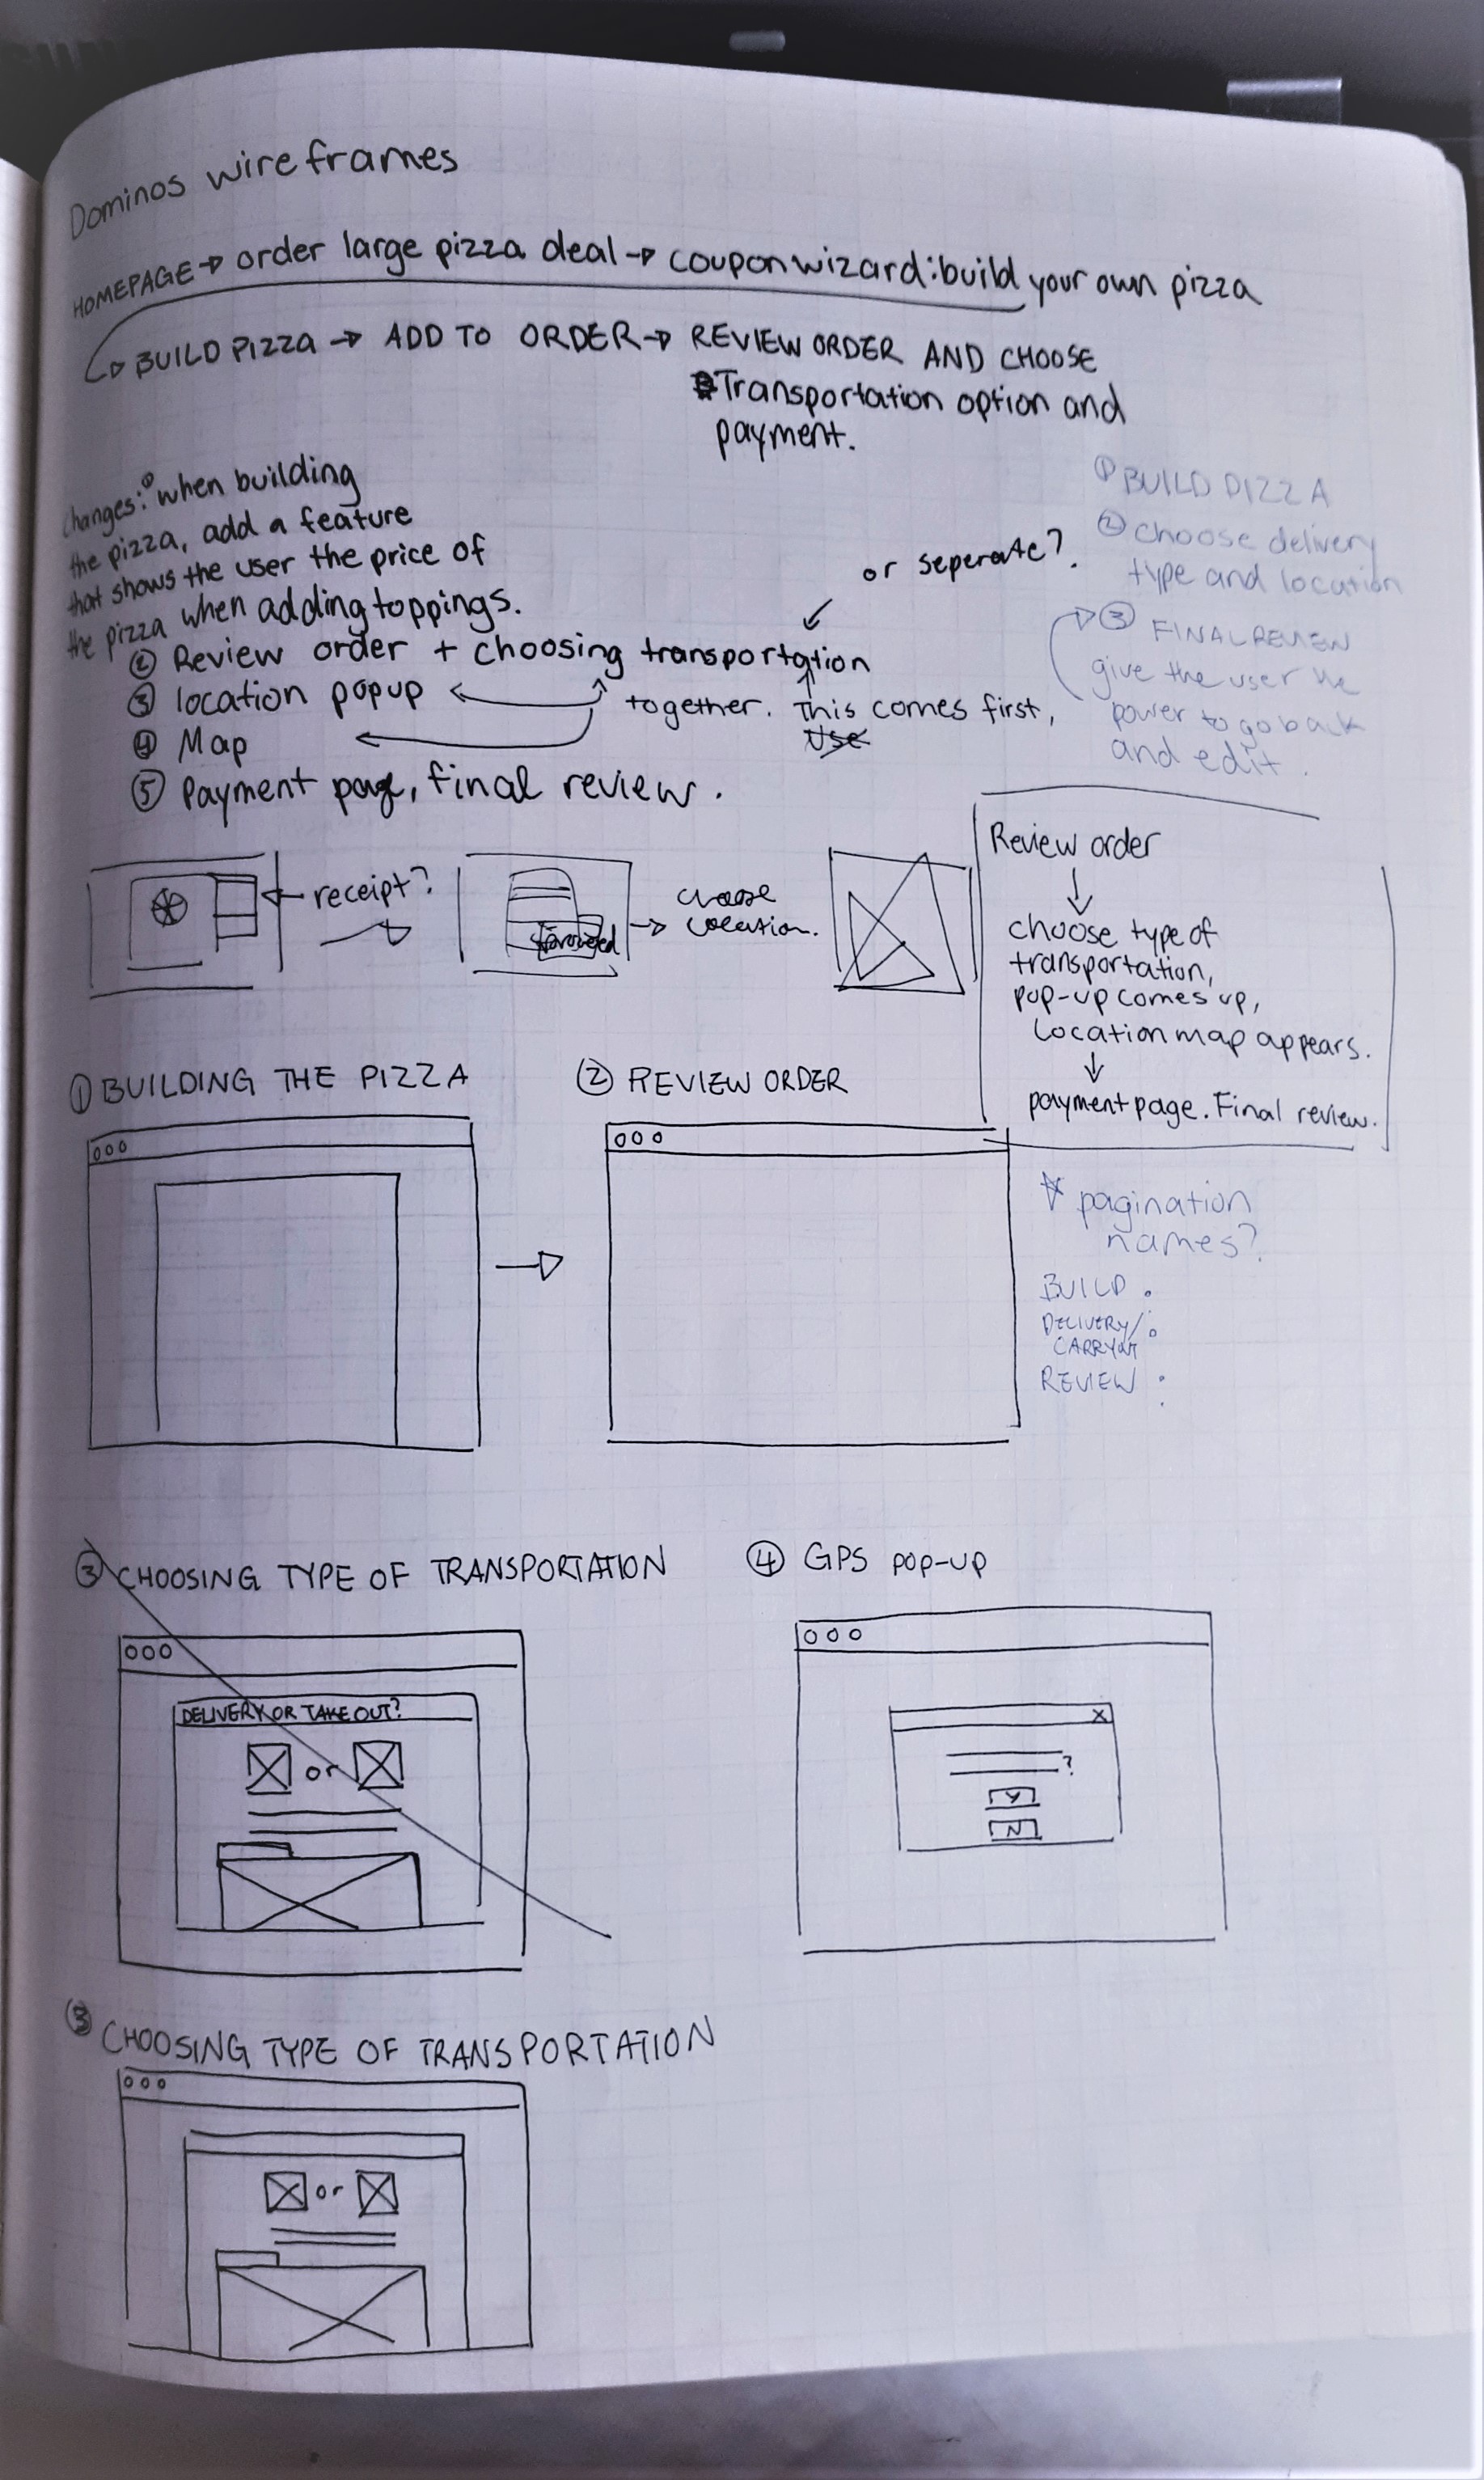 Dominos wireframes
HOMEPAGE → order large pizza deal → coupon wizard: build your own pizza
→ BUILD PIZZA → ADD TO ORDER → REVIEW ORDER AND CHOOSE
Transportation option and
payment.
changes: ① when building
the pizza, add a feature
that shows the user the price of
the pizza when adding toppings.
② Review order + choosing transportation
or seperate?
③ location popup
together. This comes first,
Use
④ Map
⑤ Payment page, final review.
① BUILD PIZZA
② choose delivery
type and location
③ FINAL REVIEW
give the user the
power to go back
and edit.
receipt?
choose
location.
Review order
↓
choose type of
transportation,
pop-up comes up,
location map appears.
↓
payment page. Final review.
① BUILDING THE PIZZA
② REVIEW ORDER
* pagination
names?
BUILD
DELIVERY/
CARRYOUT
REVIEW
③ CHOOSING TYPE OF TRANSPORTATION
DELIVERY OR TAKE OUT?
or
④ GPS POP-UP
X
?
Y
N
③ CHOOSING TYPE OF TRANSPORTATION
or